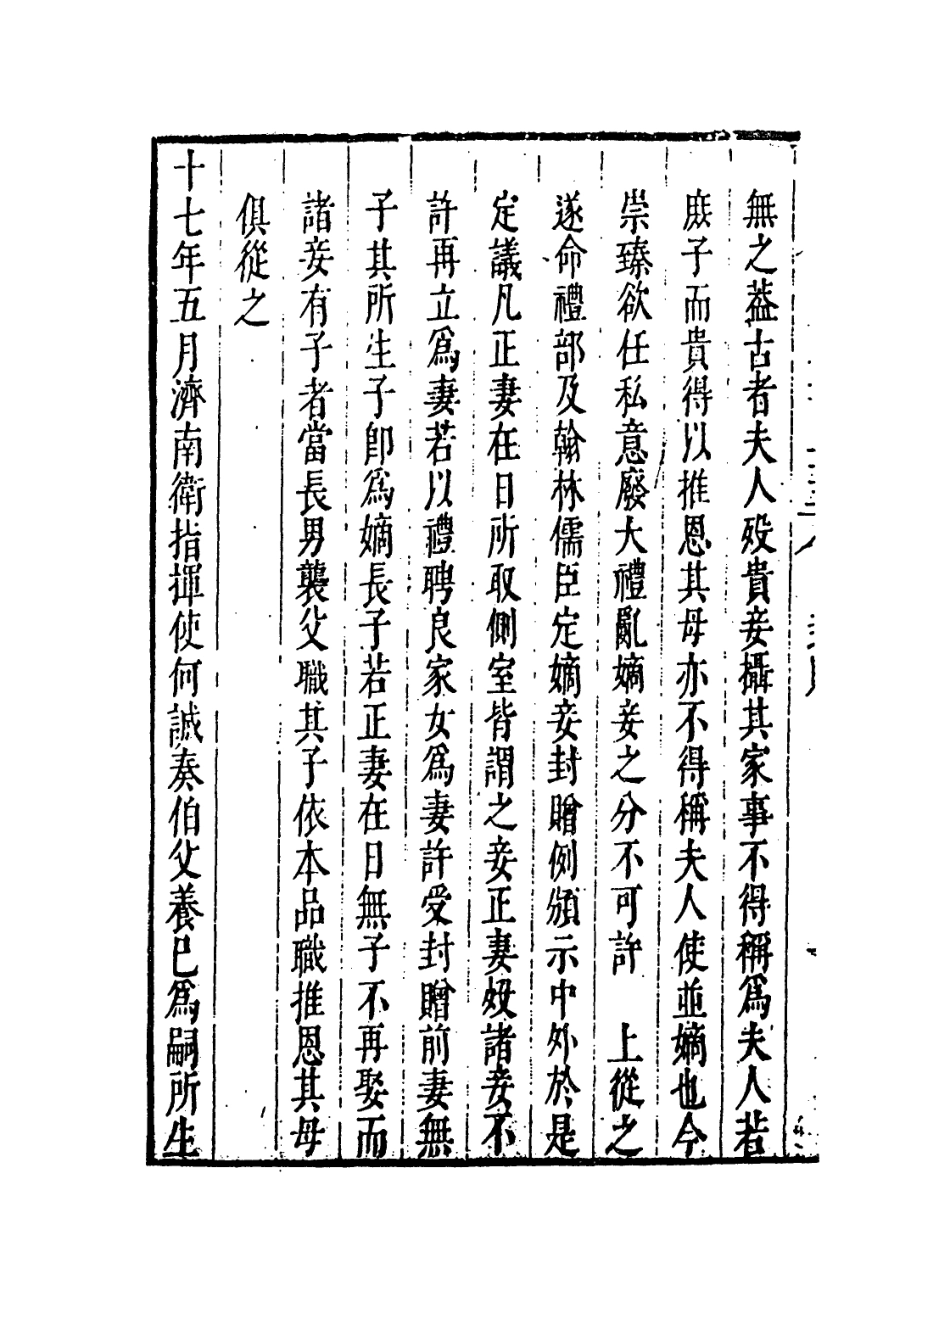 無之葢古者夫人歿貴妾攝其家事不得稱爲夫人若
庶子而貴得以推恩其母亦不得稱夫人使並嫡也今
崇臻欲任私意廢大禮亂嫡妾之分不可許　上從之
遂命禮部及翰林儒臣定嫡妾封贈例頒示中外於是
定議凡正妻在日所取側室皆謂之妾正妻歿諸妾不
許再立爲妻若以禮聘良家女爲妻許受封贈前妻無
子其所生子卽爲嫡長子若正妻在日無子不再娶而
諸妾有子者當長男襲父職其子依本品職推恩其母
俱從之
十七年五月濟南衛指揮使何誠奏伯父養巳爲嗣所生